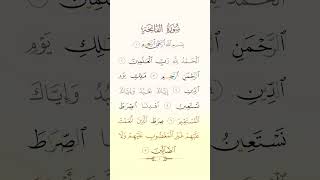 سُورَةُ الفَاتِحَةِ
بِسْمِ ٱللَّهِ ٱلرَّحْمَٰنِ ٱلرَّحِيمِ ١
ٱلْحَمْدُ لِلَّهِ رَبِّ ٱلْعَٰلَمِينَ ٢
ٱلرَّحْمَٰنِ ٱلرَّحِيمِ ٣ مَٰلِكِ يَوْمِ
ٱلدِّينِ ٤ إِيَّاكَ نَعْبُدُ وَإِيَّاكَ
نَسْتَعِينُ ٥ ٱهْدِنَا ٱلصِّرَٰطَ
ٱلْمُسْتَقِيمَ ٦ صِرَٰطَ ٱلَّذِينَ أَنْعَمْتَ
عَلَيْهِمْ غَيْرِ ٱلْمَغْضُوبِ عَلَيْهِمْ وَلَا
ٱلضَّآلِّينَ ٧